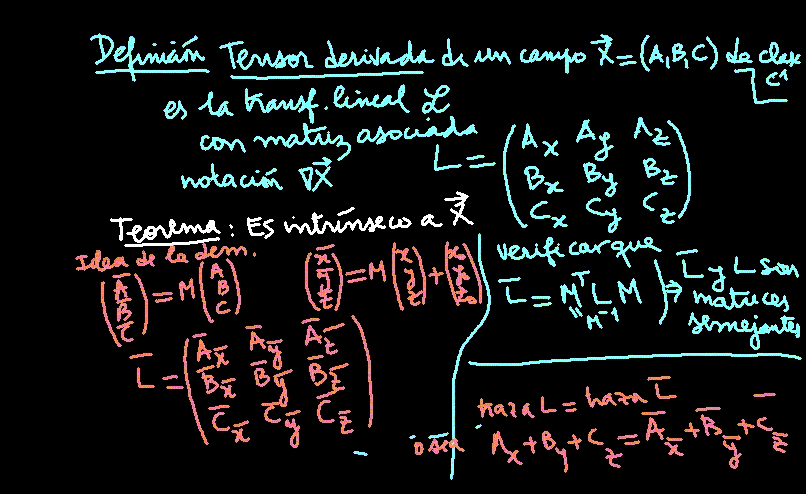 Definición Tensor derivada de un campo X⃗ = (A, B, C) de clase C¹
es la transf. lineal ℒ
con matriz asociada
notación ∇X⃗
L = (A_x A_y A_z
B_x B_y B_z
C_x C_y C_z)
Teorema: Es intrínseco a X⃗
Idea de la dem.
(A̅ B̅ C̅) = M (A B C)
(x̅ y̅ z̅) = M (x y z) + (x₀ y₀ z₀)
L̅ = (A̅_x̅ A̅_y̅ A̅_z̅
B̅_x̅ B̅_y̅ B̅_z̅
C̅_x̅ C̅_y̅ C̅_z̅)
verificar que
L̅ = Mᵀ L M ⇒ L̅ y L son
" M⁻¹
matrices
semejantes
traza L = traza L̅
o sea A_x + B_y + C_z = A̅_x̅ + B̅_y̅ + C̅_z̅